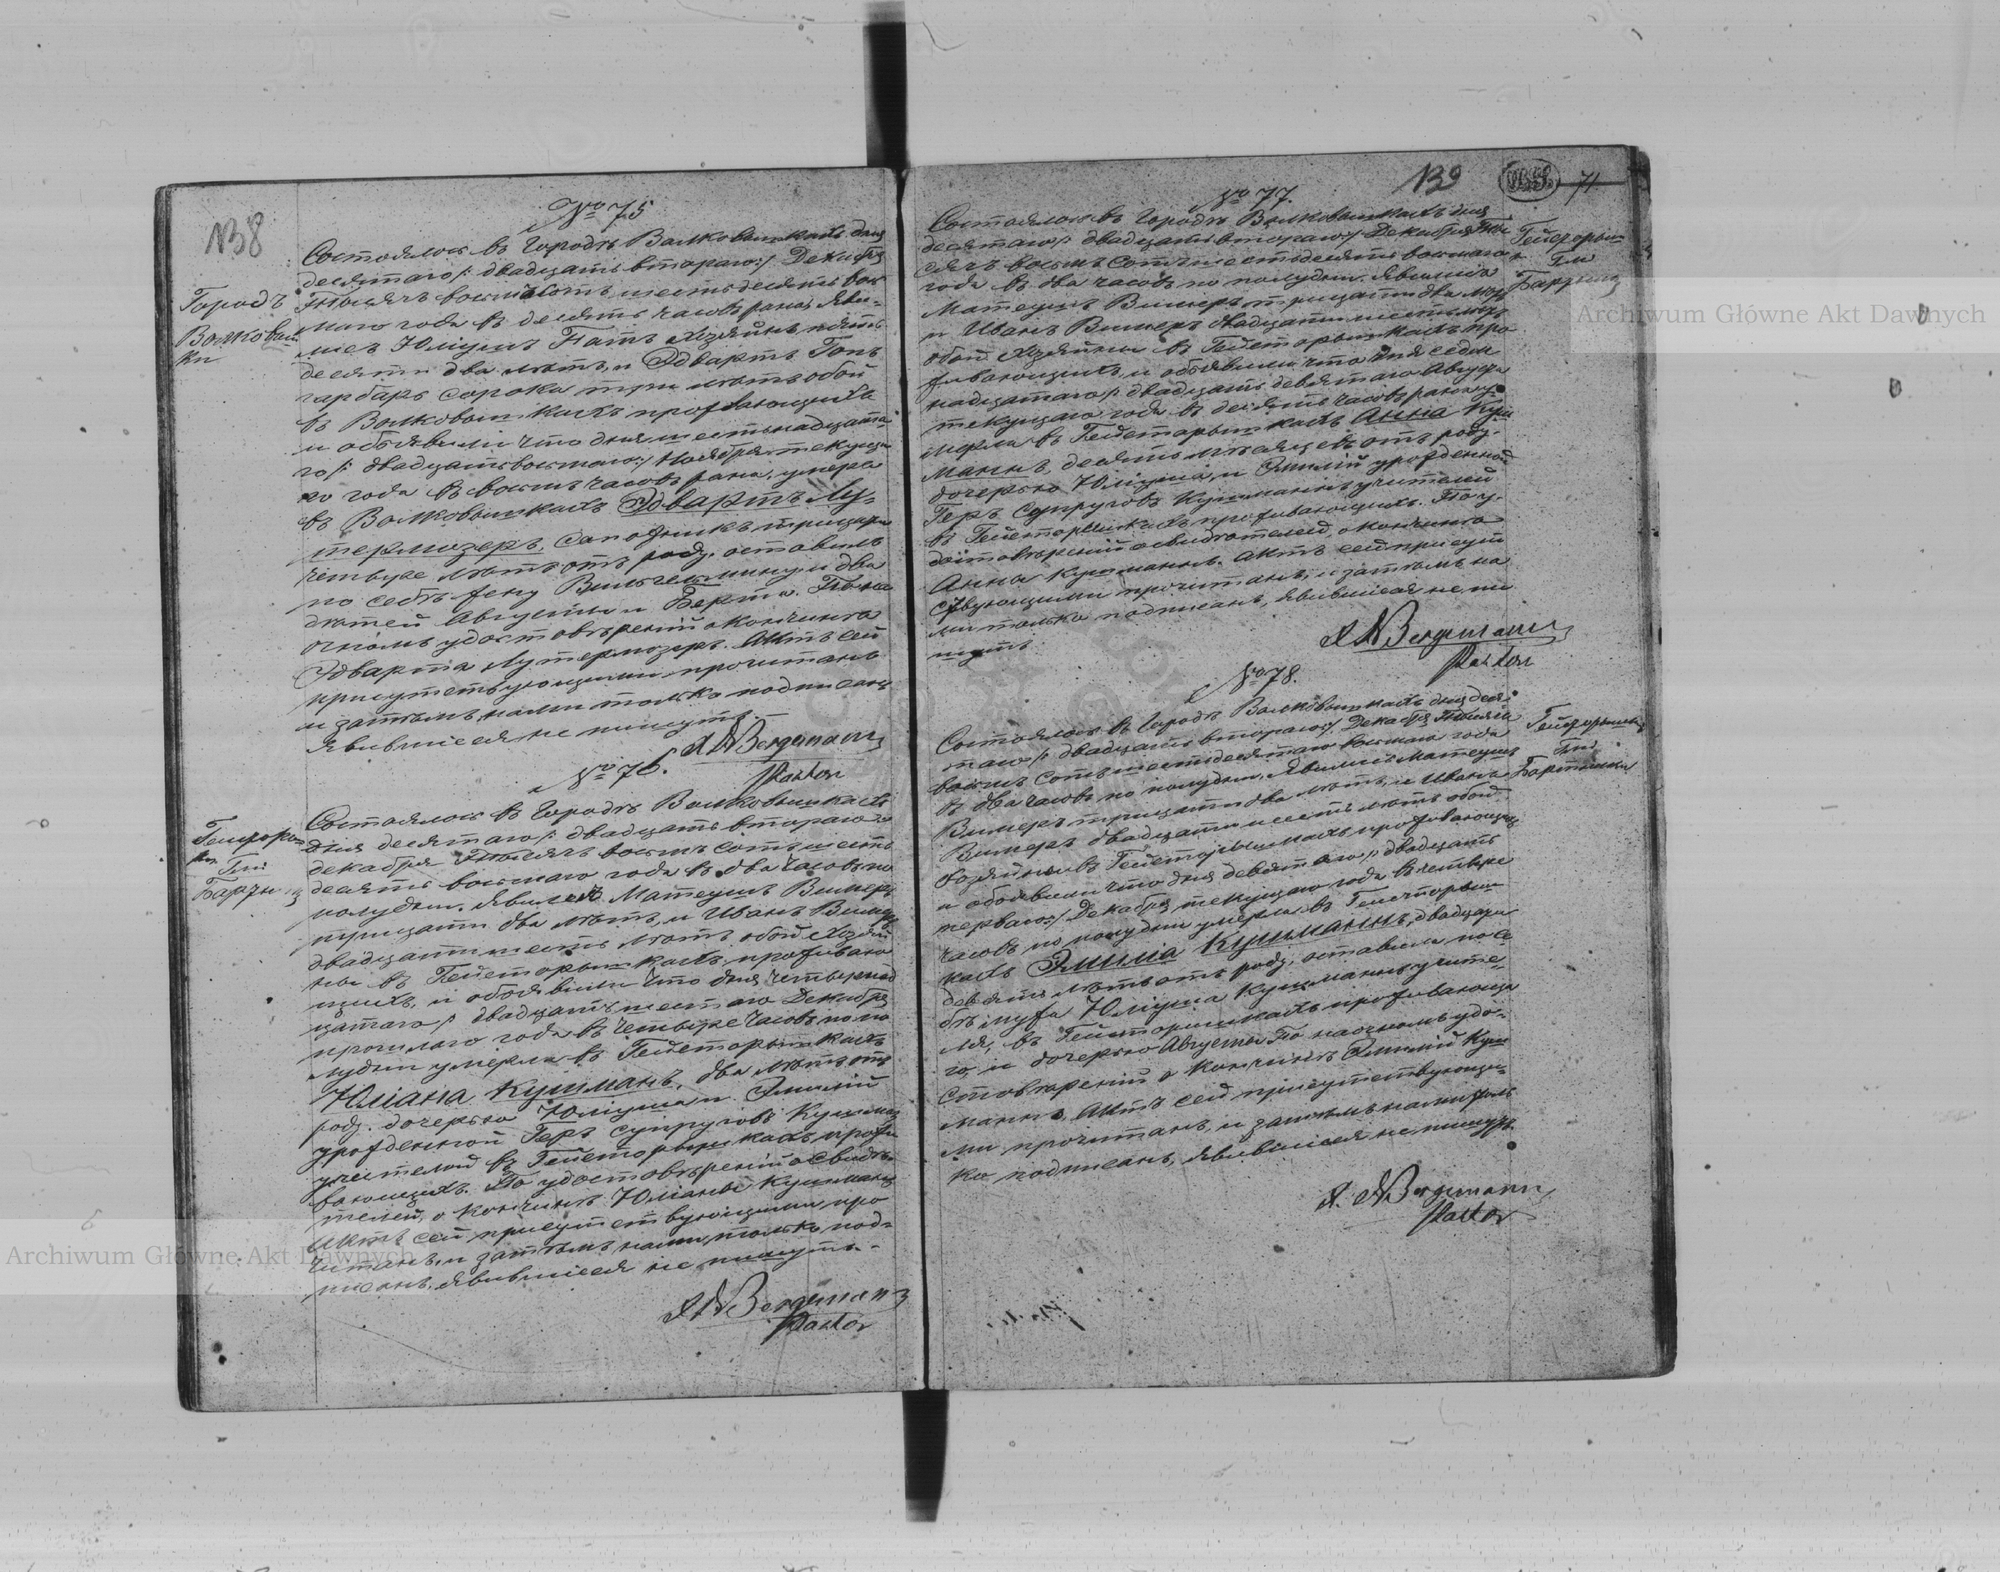 138
№ 75
Городъ
Волковыш
ки
Состоялось въ городѣ Волковышкахъ дня
десятаго /: двадцать втораго :/ Декабря
тысяча восемьсотъ шестьдесятъ вось
маго года въ десять часовъ рана, Яви-
лись Юліушъ Гатъ хозяйнъ пять
десятъ два лѣтъ, и Эдвартъ Гопъ
гарбаръ сорока три лѣтъ обой
въ Волковышкахъ проживающихъ
и объявили что дня шестьнадцата
го /: двадцать восьмаго :/ Ноября текуща
го года въ восемь часовъ рана, умеръ
въ Волковышкахъ Эдвартъ Лу-
термозеръ, сапожникъ, трицать
четыре лѣтъ отъ роду, оставилъ
по себѣ жену Вильгельмину и два
дѣтей Августы и Берта. По на
очномъ удостовѣреній о кончинѣ
Эдварта Лутермозеръ. Актъ сей
присутствующими прочитанъ
и затѣмъ нами только подписанъ
явившіеся не пишутъ.
A W Bergemann
Pastor
№ 76.
Гейстори
Гми
Барты
Состоялось въ городѣ Волковышкахъ
дня десятаго /: двадцать втораго
декабря тысяча восемь сотъ шесть
десятъ восьмаго года въ два часовъ по
полудни. Явились Матеушъ Вимеръ
трицати два лѣтъ, и Иванъ Вимеръ
двадцати шесть лѣтъ обой хозяй
ны въ Гейсторышкахъ прожываю
щихъ, и объявили что дня четырнад
цатаго /: двадцать шестаго Декабря
прошлаго года въ четыре часовъ попо
лудни умерла въ Гейсторышкахъ
Юліана Кушманъ, два лѣтъ отъ
роду. дочерью Юліуша и Эмилій
урожденной Геръ супруговъ Кушманъ
учителей въ Гейсторышкахъ прожи
вающихъ. По удостовѣреній о свидѣ-
телей, о кончинѣ Юліаны Кушманъ
Актъ сей присутствующими про
читанъ, и затѣмъ нами только под-
писанъ, явившіеся не пишутъ.
A W Bergemann
Pastor
139
71
№ 77.
Гейсторыш
Гми
Барты
Состоялось въ городѣ Волковышкахъ дня
десятаго /: двадцать втораго :/ Декабря Ты
сячъ восемь сотъ шестьдесятъ восьмаго
года въ два часовъ по полудни. Явились
Матеушъ Вимеръ, трицати два лѣтъ
и Иванъ Вимеръ двадцати шесть лѣтъ
обой хозяйны въ Гейсторышкахъ про
живающихъ, и объявили что дня седм
надцатаго /: двадцать девятаго Августа
текущаго года въ десять часовъ рана, у-
мерла въ Гейсторышкахъ Анна Куш
манъ, десять мѣсяцевъ отъ роду.
дочерью Юліуша, и Эмилій урожденной
Геръ супруговъ Кушманнъ учителей
въ Гейсторышкахъ проживающихъ. По у-
достовѣреній о свидѣтелей, о кончинѣ
Анны Кушманнъ. Актъ сей присут
ствующими прочитанъ, и затѣмъ на
ми только подписанъ, явившіеся не пи
шутъ
A W Bergemann
Pastor
№ 78.
Гейсторышки
Гми
Бартники
Состоялось въ городѣ Волковышкахъ дня деся-
таго /: двадцать втораго :/ Декабря Тысяча
восемь сотъ шестьдесятаго восьмаго года
въ два часовъ по полудни. Явились Матеушъ
Вимеръ трицати два лѣтъ, и Иванъ
Вимеръ двадцати шесть лѣтъ обой
хозяйны въ Гейсторышкахъ проживающихъ
и объявили что дня девятаго /: двадцать
перваго :/ Декабря текущаго года въ четыре
часовъ по полудни умерла въ Гейсторыш
кахъ Эмилія Кушманнъ, двадцати
девять лѣтъ отъ роду, оставила по се
бѣ мужа Юліуша Кушманнъ учите-
ля, въ Гейсторышкахъ проживающа
го и дочерью Августы По наочномъ удо-
стовѣреній о кончинѣ Эмилій Куш
маннъ. Актъ сей присутствующи-
ми прочитанъ, и затѣмъ нами толь
ко подписанъ, явившіеся не пишутъ.
A. W Bergemann
Pastor
Archiwum Główne Akt Dawnych
Archiwum Główne Akt Dawnych